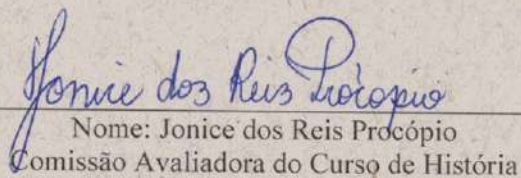 Jonice dos Reis Procópio
Nome: Jonice dos Reis Procópio
Comissão Avaliadora do Curso de História